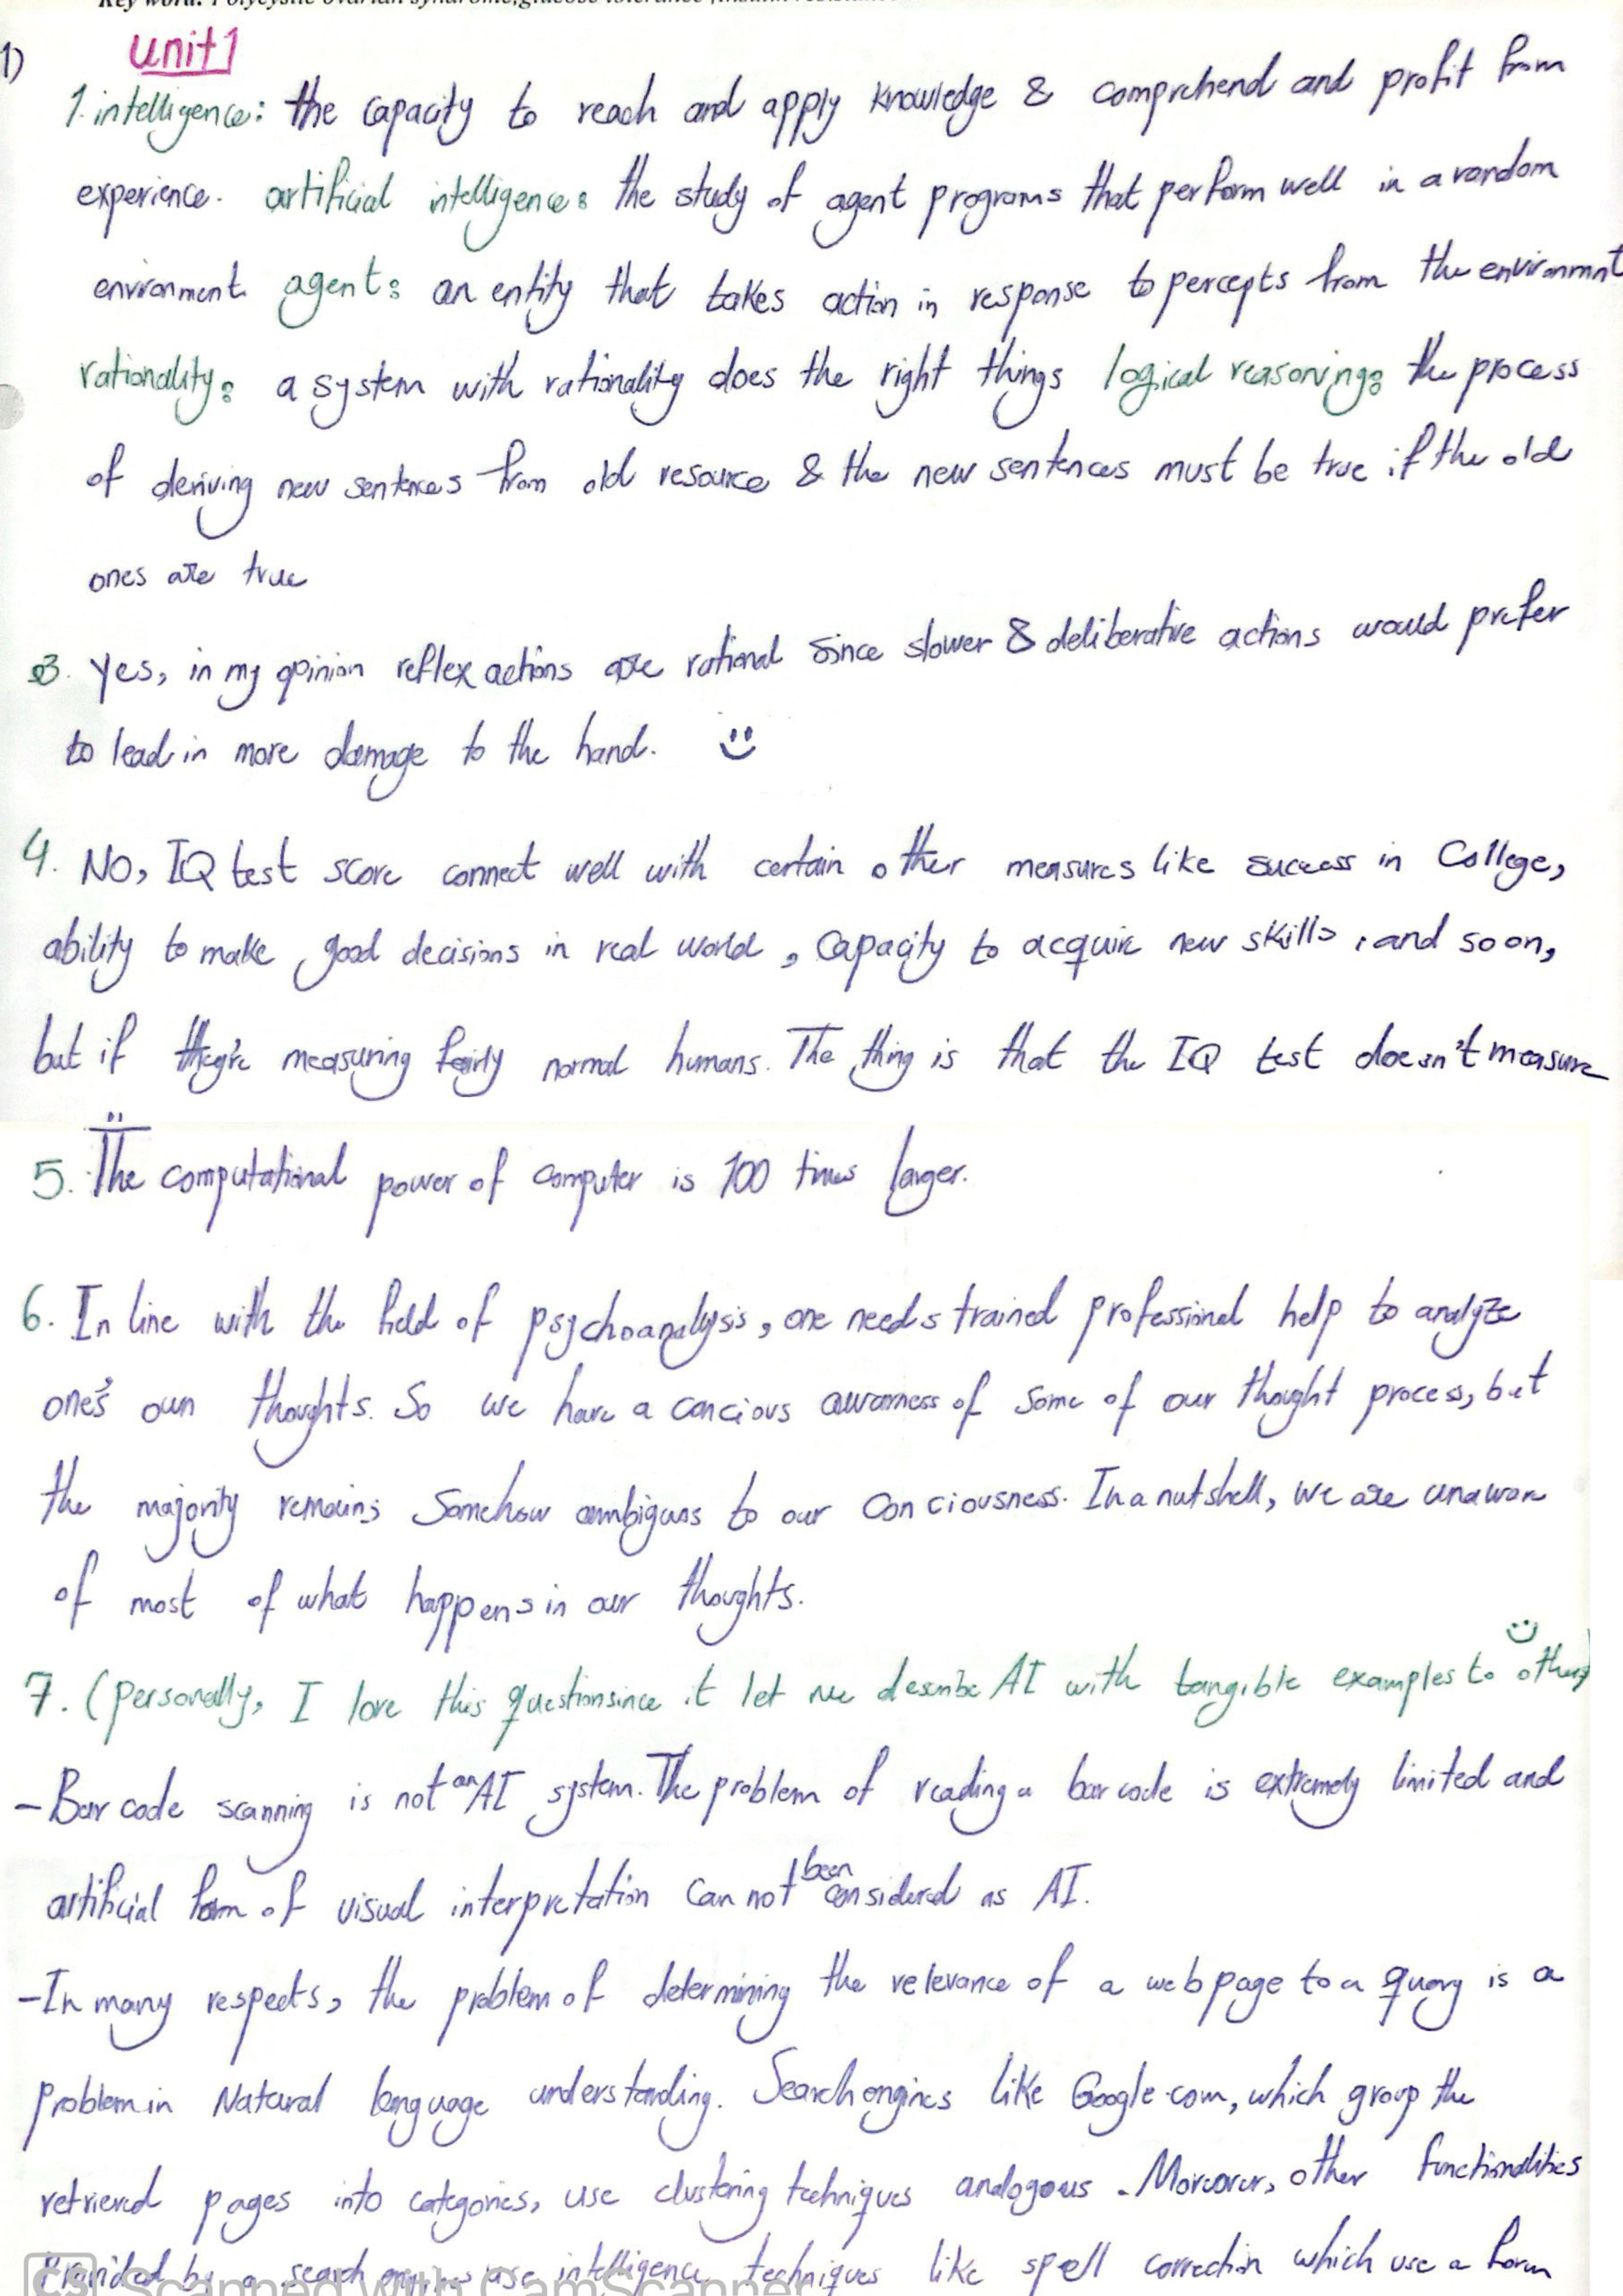 Key word: Polycystic ovarian syndrome, glucose tolerance, insulin resistance
1) unit 1
1. intelligence: the capacity to reach and apply knowledge & comprehend and profit from
experience. artificial intelligence: the study of agent programs that perform well in a random
environment. agent: an entity that takes action in response to percepts from the environmnt
rationality: a system with rationality does the right things logical reasoning: the process
of deriving new sentences from old resource & the new sentences must be true if the old
ones are true
3. Yes, in my opinion reflex actions are rational since slower & deliberative actions would prefer
to lead in more damage to the hand. :)
4. No, IQ test score connect well with certain other measures like success in College,
ability to make good decisions in real world, capacity to acquire new skills, and so on,
but if they're measuring fairly normal humans. The thing is that the IQ test doesn't measure
5. The computational power of computer is 100 times larger.
6. In line with the field of psychoanalysis, one needs trained professional help to analyze
one's own thoughts. So we have a concious awarness of some of our thought process, but
the majority remains somehow ambiguos to our conciousness. In a nutshell, we are unaware
of most of what happens in our thoughts.
7. (personally, I love this question since it let me describe AI with tangible examples to others :)
- Bar code scanning is not an AI system. The problem of reading a bar code is extremely limited and
artificial form of visual interpretation can not been considered as AI.
- In many respects, the problem of determining the relevance of a web page to a query is a
problem in Natural language understanding. Search engines like Google.com, which group the
retrieved pages into categories, use clustering techniques analogous. Moreover, other functionalities
provided by a search engines use intelligence techniques like spell correction which use a form
CS Scanned with CamScanner